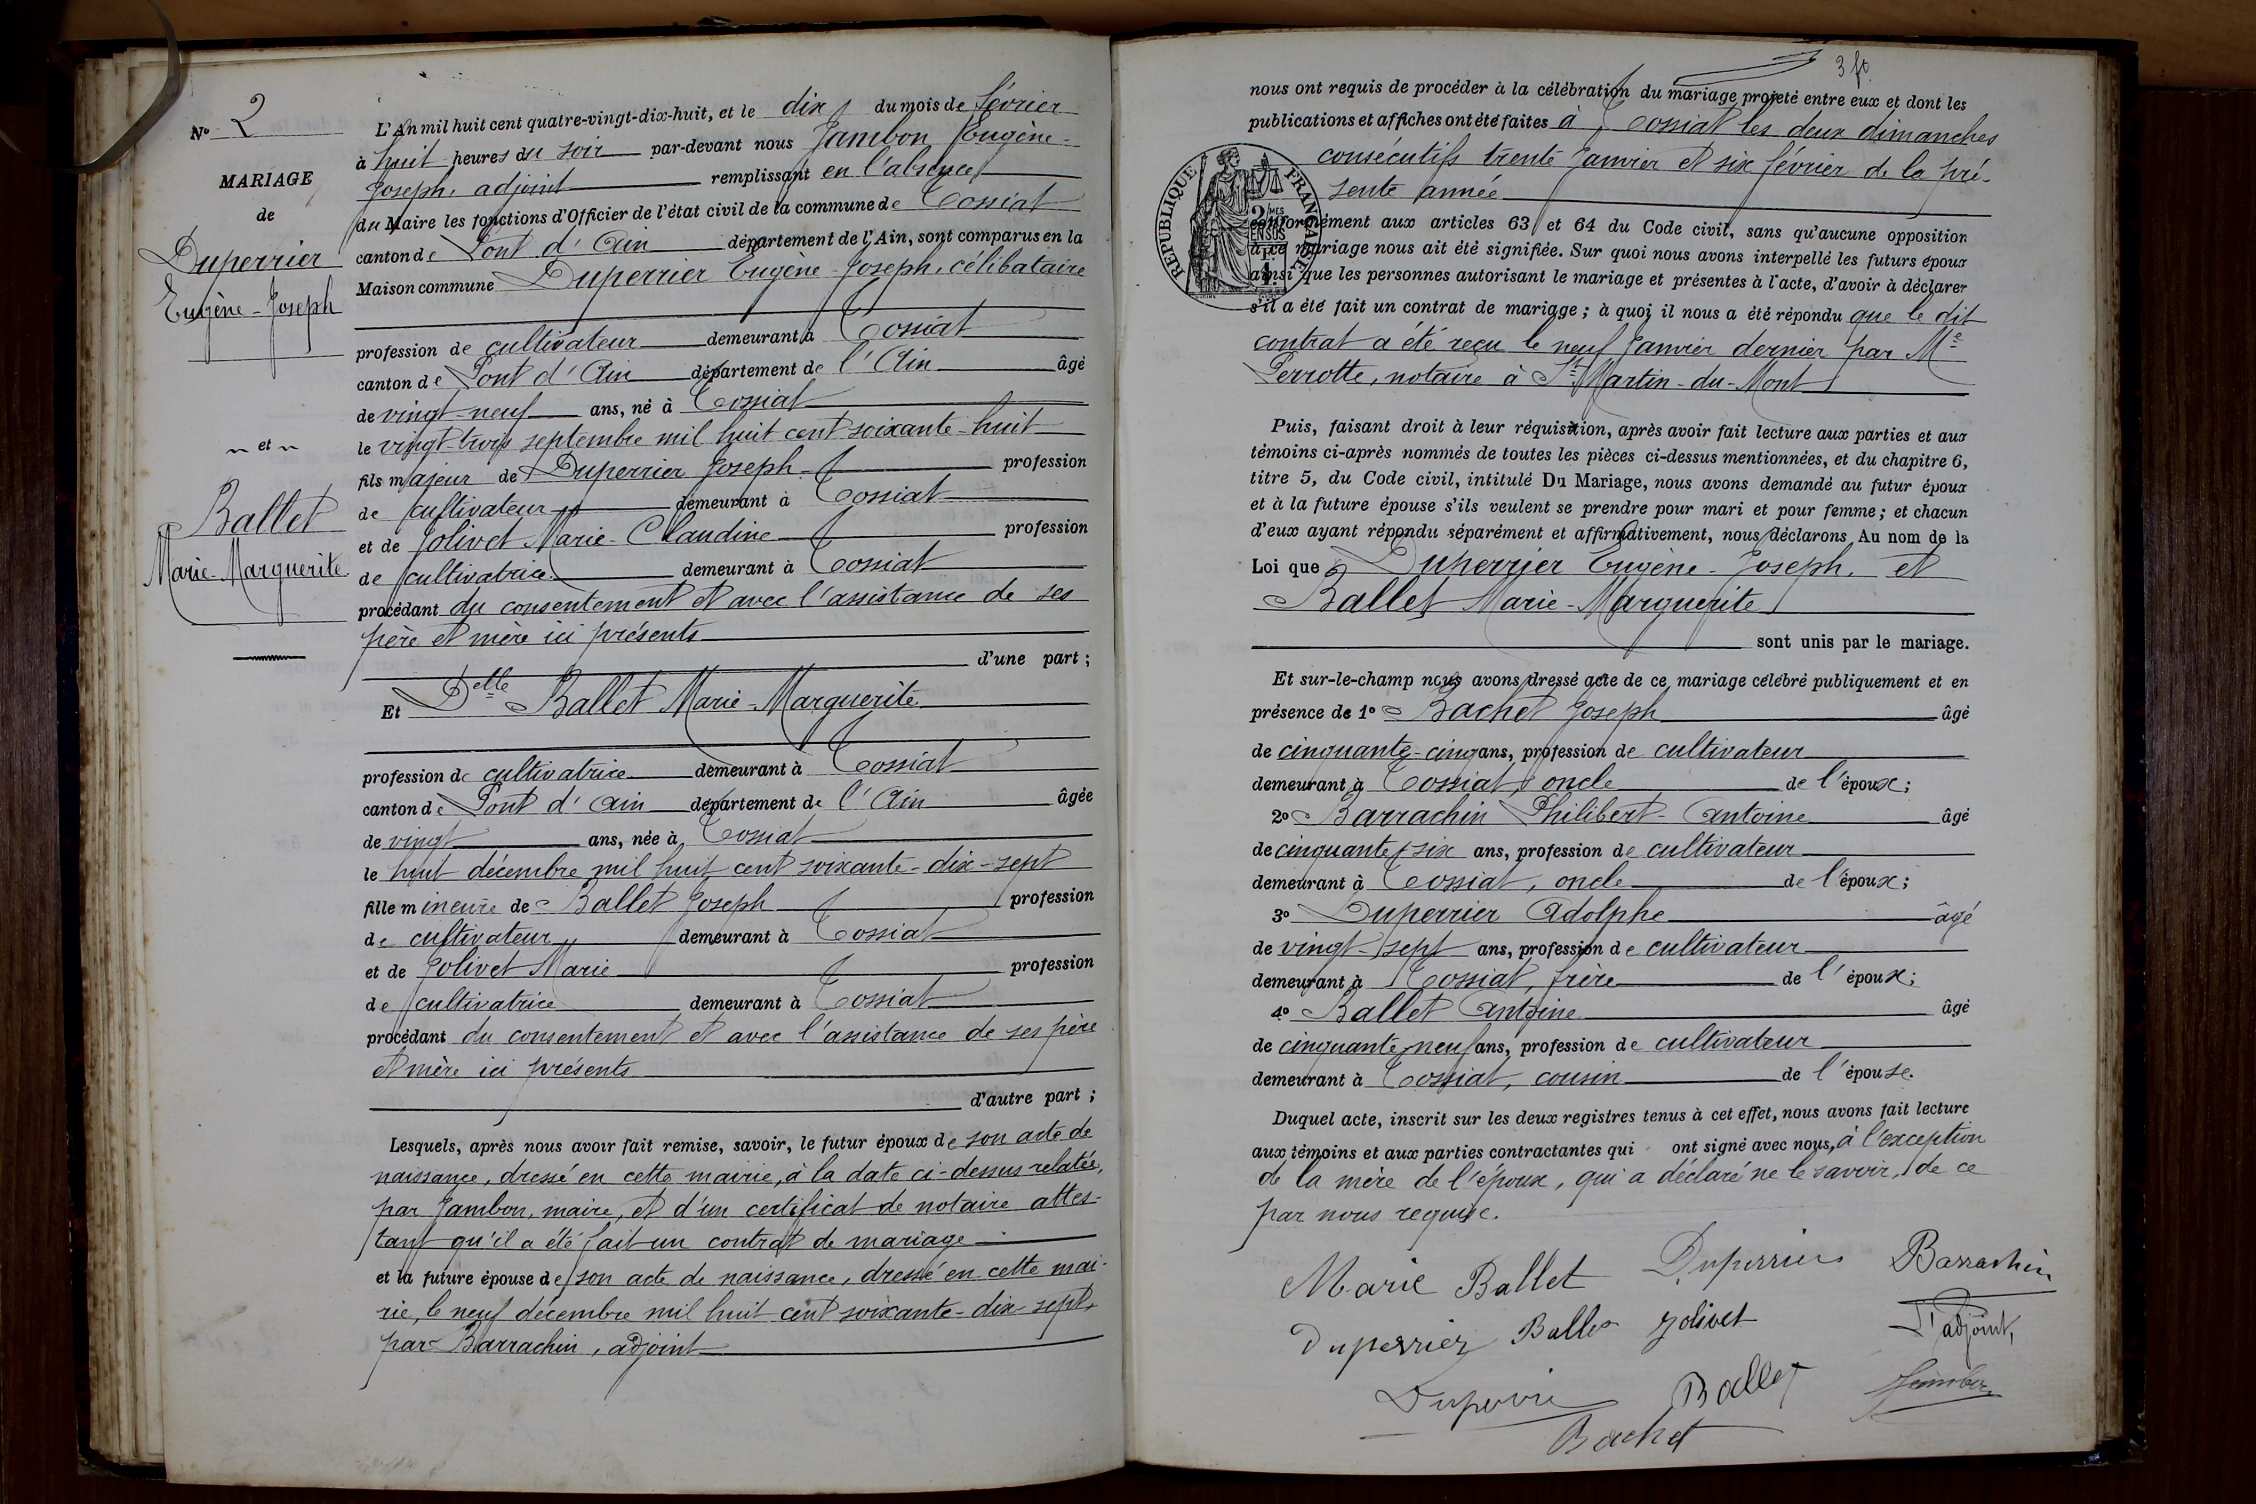 N° 2
MARIAGE
de
Duperrier
Eugène-Joseph
et
Ballet
Marie-Marguerite
L'An mil huit cent quatre-vingt-dix-huit, et le dix du mois de février
à huit heures du soir par-devant nous Jambon Eugène-
Joseph, adjoint remplissant en l'absence
du Maire les fonctions d'Officier de l'état civil de la commune de Tossiat
canton de Pont d'Ain département de l'Ain, sont comparus en la
Maison commune Duperrier Eugène-Joseph, célibataire
profession de cultivateur demeurant à Tossiat
canton de Pont d'Ain département de l'Ain âgé
de vingt-neuf ans, né à Tossiat
le vingt-trois septembre mil huit cent soixante-huit
fils majeur de Duperrier Joseph profession
de cultivateur demeurant à Tossiat
et de Jolivet Marie-Claudine profession
de cultivatrice demeurant à Tossiat
procédant du consentement et avec l'assistance de ses
père et mère ici présents
d'une part ;
Et Delle Ballet Marie-Marguerite
profession de cultivatrice demeurant à Tossiat
canton de Pont d'Ain département de l'Ain âgée
de vingt ans, née à Tossiat
le huit décembre mil huit cent soixante-dix-sept
fille mineure de Ballet Joseph profession
de cultivateur demeurant à Tossiat
et de Jolivet Marie profession
de cultivatrice demeurant à Tossiat
procédant du consentement et avec l'assistance de ses père
et mère ici présents
d'autre part ;
Lesquels, après nous avoir fait remise, savoir, le futur époux de son acte de
naissance, dressé en cette mairie, à la date ci-dessus relatée,
par Jambon, maire, et d'un certificat de notaire attes-
tant qu'il a été fait un contrat de mariage
et la future épouse de son acte de naissance, dressé en cette mai-
rie, le neuf décembre mil huit cent soixante-dix-sept,
par Barrachin, adjoint
3 ft
nous ont requis de procéder à la célébration du mariage projeté entre eux et dont les
publications et affiches ont été faites à Tossiat les deux dimanches
consécutifs trente Janvier et six février de la pré-
sente année
RÉPUBLIQUE FRANÇAISE
2/MES
EN SUS
conformément aux articles 63 et 64 du Code civil, sans qu'aucune opposition
à ce mariage nous ait été signifiée. Sur quoi nous avons interpellé les futurs époux
ainsi que les personnes autorisant le mariage et présentes à l'acte, d'avoir à déclarer
s'il a été fait un contrat de mariage ; à quoi il nous a été répondu que le dit
contrat a été reçu le neuf Janvier dernier par Me
Perrotte, notaire à St Martin-du-Mont
Puis, faisant droit à leur réquisition, après avoir fait lecture aux parties et aux
témoins ci-après nommés de toutes les pièces ci-dessus mentionnées, et du chapitre 6,
titre 5, du Code civil, intitulé Du Mariage, nous avons demandé au futur époux
et à la future épouse s'ils veulent se prendre pour mari et pour femme ; et chacun
d'eux ayant répondu séparément et affirmativement, nous déclarons Au nom de la
Loi que Duperrier Eugène-Joseph, et
Ballet Marie-Marguerite
sont unis par le mariage.
Et sur-le-champ nous avons dressé acte de ce mariage célébré publiquement et en
présence de 1° Bachet Joseph âgé
de cinquante-cinq ans, profession de cultivateur
demeurant à Tossiat, oncle de l'époux ;
2° Barrachin Philibert-Antoine âgé
de cinquante-six ans, profession de cultivateur
demeurant à Tossiat, oncle de l'époux ;
3° Duperrier Adolphe âgé
de vingt-sept ans, profession de cultivateur
demeurant à Tossiat, frère de l'époux ;
4° Ballet Antoine âgé
de cinquante-neuf ans, profession de cultivateur
demeurant à Tossiat, cousin de l'épouse.
Duquel acte, inscrit sur les deux registres tenus à cet effet, nous avons fait lecture
aux témoins et aux parties contractantes qui ont signé avec nous, à l'exception
de la mère de l'époux, qui a déclaré ne le savoir, de ce
par nous requise.
Marie Ballet Duperrier Barrachin
Duperrier Ballet Jolivet L'adjoint,
Duperrier Ballet Jambon
Bachet